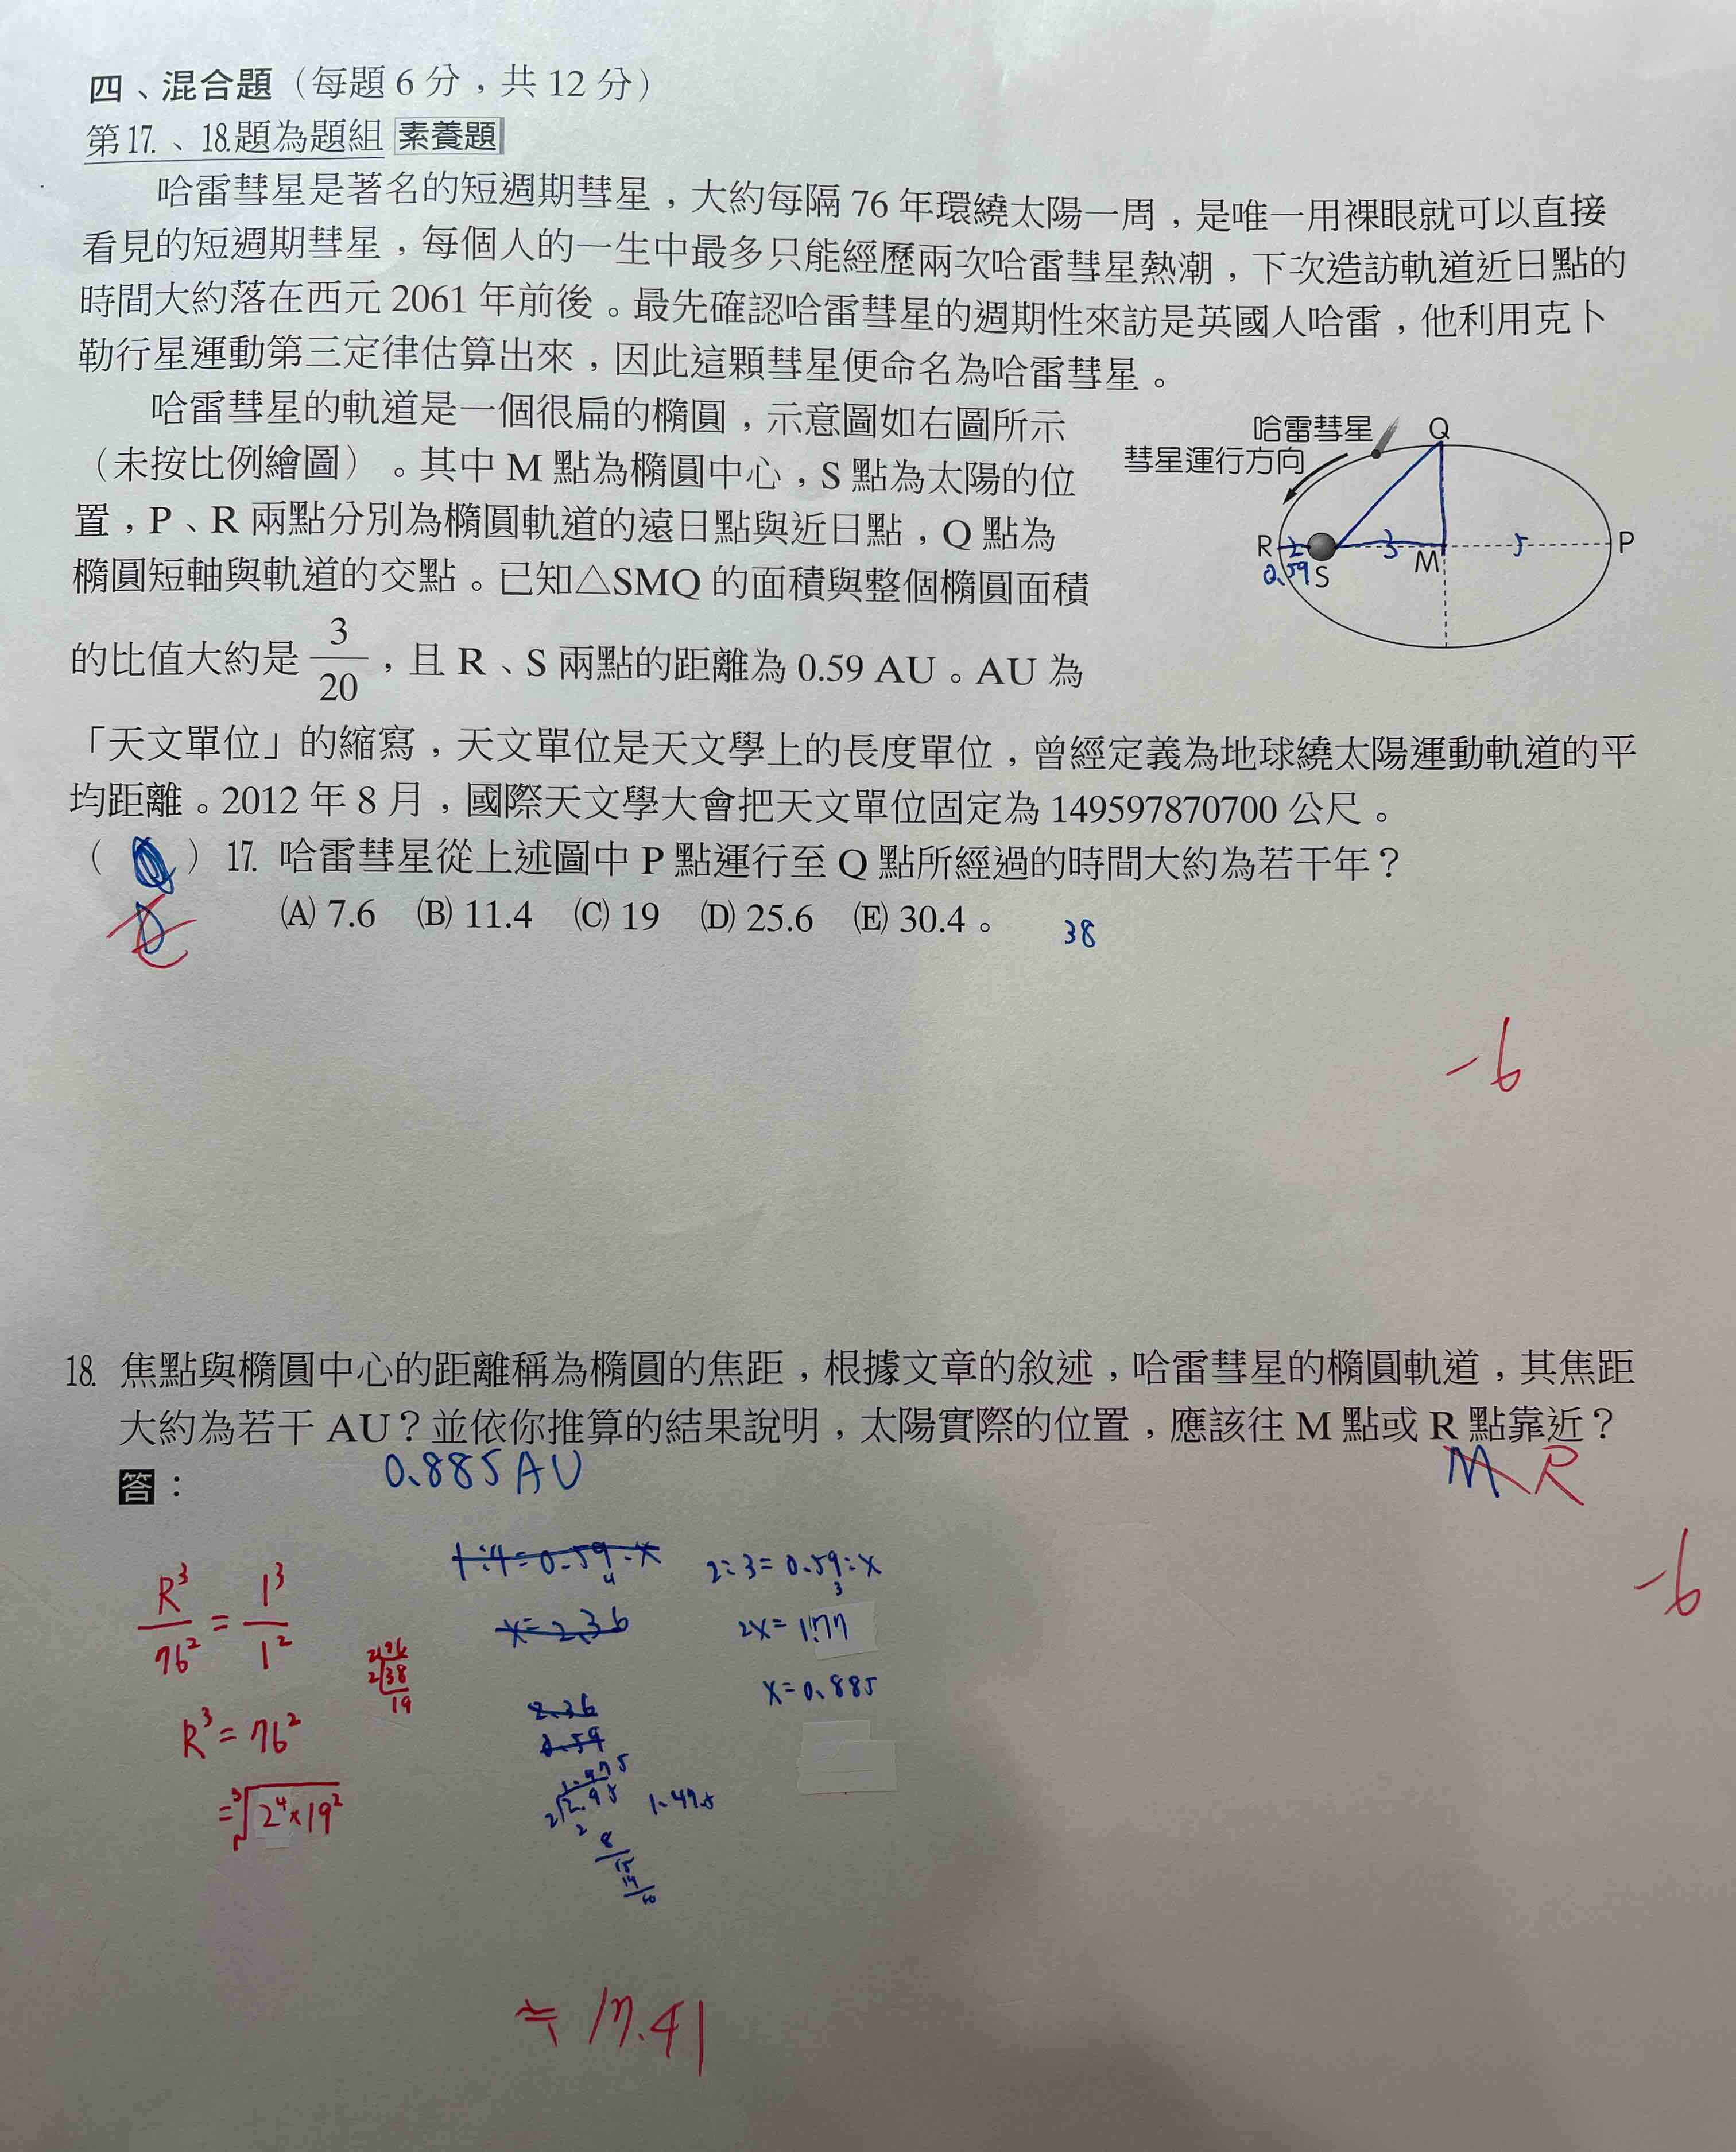 四、混合題（每題 6 分，共 12 分）
第17.、18.題為題組 素養題
哈雷彗星是著名的短週期彗星，大約每隔 76 年環繞太陽一周，是唯一用裸眼就可以直接
看見的短週期彗星，每個人的一生中最多只能經歷兩次哈雷彗星熱潮，下次造訪軌道近日點的
時間大約落在西元 2061 年前後。最先確認哈雷彗星的週期性來訪是英國人哈雷，他利用克卜
勒行星運動第三定律估算出來，因此這顆彗星便命名為哈雷彗星。
哈雷彗星的軌道是一個很扁的橢圓，示意圖如右圖所示
（未按比例繪圖）。其中 M 點為橢圓中心，S 點為太陽的位
置，P、R 兩點分別為橢圓軌道的遠日點與近日點，Q 點為
橢圓短軸與軌道的交點。已知△SMQ 的面積與整個橢圓面積
的比值大約是 3/20，且 R、S 兩點的距離為 0.59 AU。AU 為
「天文單位」的縮寫，天文單位是天文學上的長度單位，曾經定義為地球繞太陽運動軌道的平
均距離。2012 年 8 月，國際天文學大會把天文單位固定為 149597870700 公尺。
哈雷彗星
彗星運行方向
Q
R 2 3 M 5 P
0.59 S
（ ）17. 哈雷彗星從上述圖中 P 點運行至 Q 點所經過的時間大約為若干年？
D
(A) 7.6 (B) 11.4 (C) 19 (D) 25.6 (E) 30.4。
38
-6
18. 焦點與橢圓中心的距離稱為橢圓的焦距，根據文章的敘述，哈雷彗星的橢圓軌道，其焦距
大約為若干 AU？並依你推算的結果說明，太陽實際的位置，應該往 M 點或 R 點靠近？
答：
0.885AU
M R
-6
R³/76² = 1³/1²
R³ = 76²
= ³√2⁴×19²
2 76
2 38
19
1:4=0.59:x
x=2.36
2.36
0.59
2:3=0.59:x
3
2x=1.77
x=0.885
2 2.95
1.475
≒ 17.41